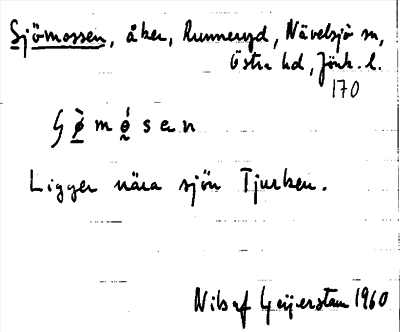 Sjömossen, åker, Runneryd, Nävelsjö sn,
Östra hd, Jönk. l.
170
Ligger nära sjön Tjurken.
Nils af Geijerstam 1960